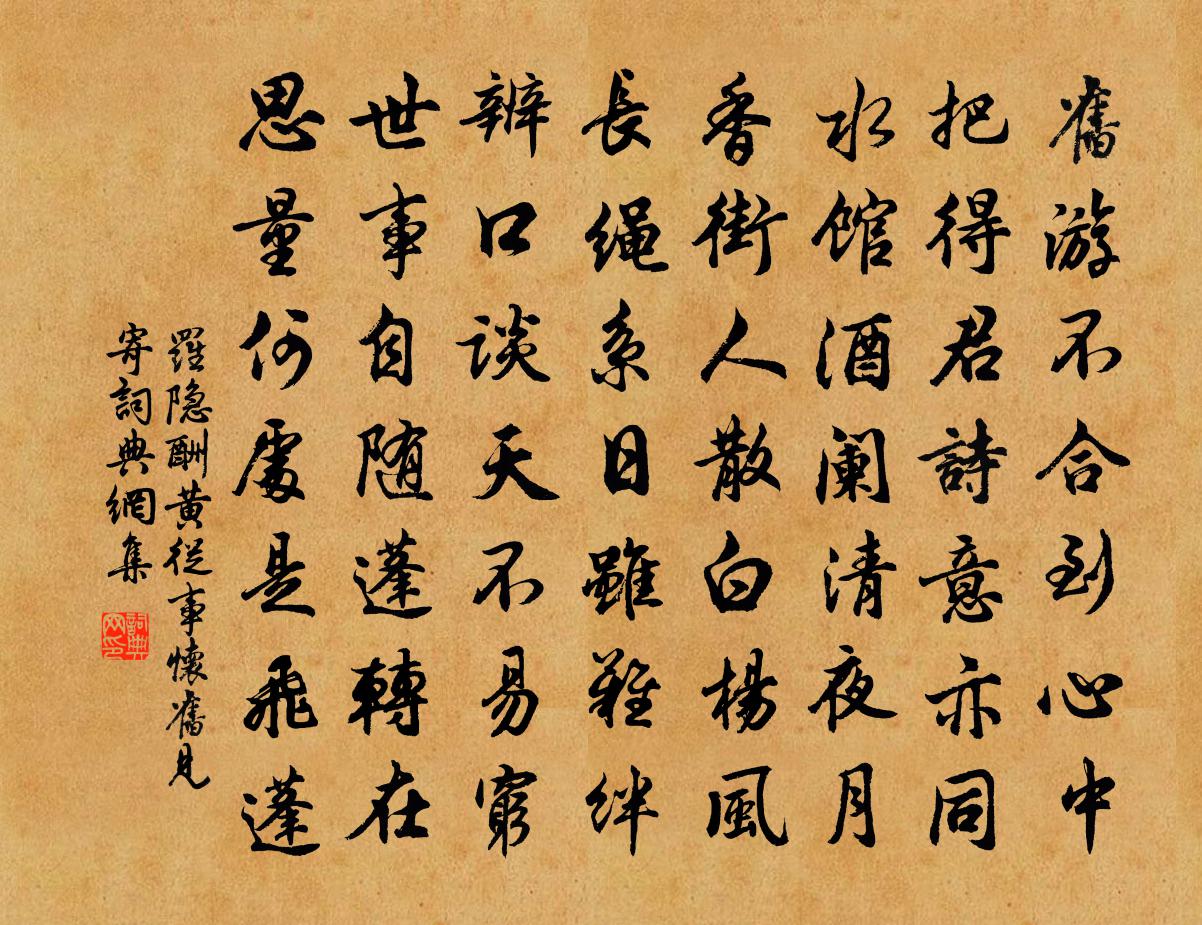 舊游不合到心中
把得君詩意亦同
水馆酒阑清夜月
香街人散白楊風
長绳系日雖難絆
辨口谈天不易窮
世事自随蓬轉在
思量何處是飛蓬
羅隐酬黄從事懷舊見
寄詞典網集
詞典网印